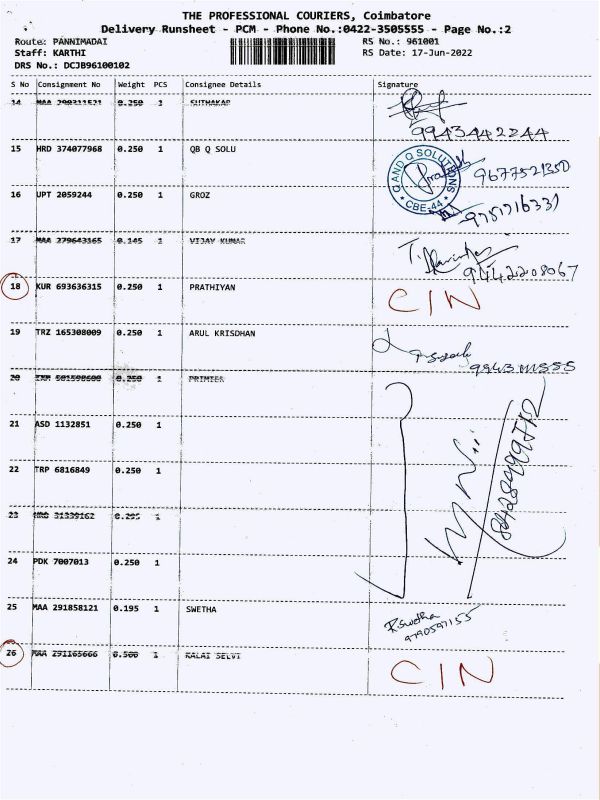 THE PROFESSIONAL COURIERS, Coimbatore
Delivery Runsheet - PCM - Phone No.:0422-3505555 - Page No.:2
Route: PANNIMADAI RS No.: 961001
Staff: KARTHI RS Date: 17-Jun-2022
DRS No.: DCJB96100102
S No Consignment No Weight PCS Consignee Details Signature
14 MAA 290311521 0.250 1 SUTHAKAR
9943442244
15 HRD 374077968 0.250 1 QB Q SOLU 9677521350
Q AND Q SOLUTIONS
* CBE-44 *
16 UPT 2059244 0.250 1 GROZ 9751716331
17 MAA 279643165 0.145 1 VIJAY KUMAR
9442208067
18 KUR 693636315 0.250 1 PRATHIYAN CIN
19 TRZ 165308009 0.250 1 ARUL KRISDHAN
20 0.250 1 PRIMIER
21 ASD 1132851 0.250 1
22 TRP 6816849 0.250 1
23 HRD 31339162 0.295 1
24 PDK 7007013 0.250 1
25 MAA 291858121 0.195 1 SWETHA R.Swetha
9790597155
26 MAA 291165666 0.500 1 KALAI SELVI CIN